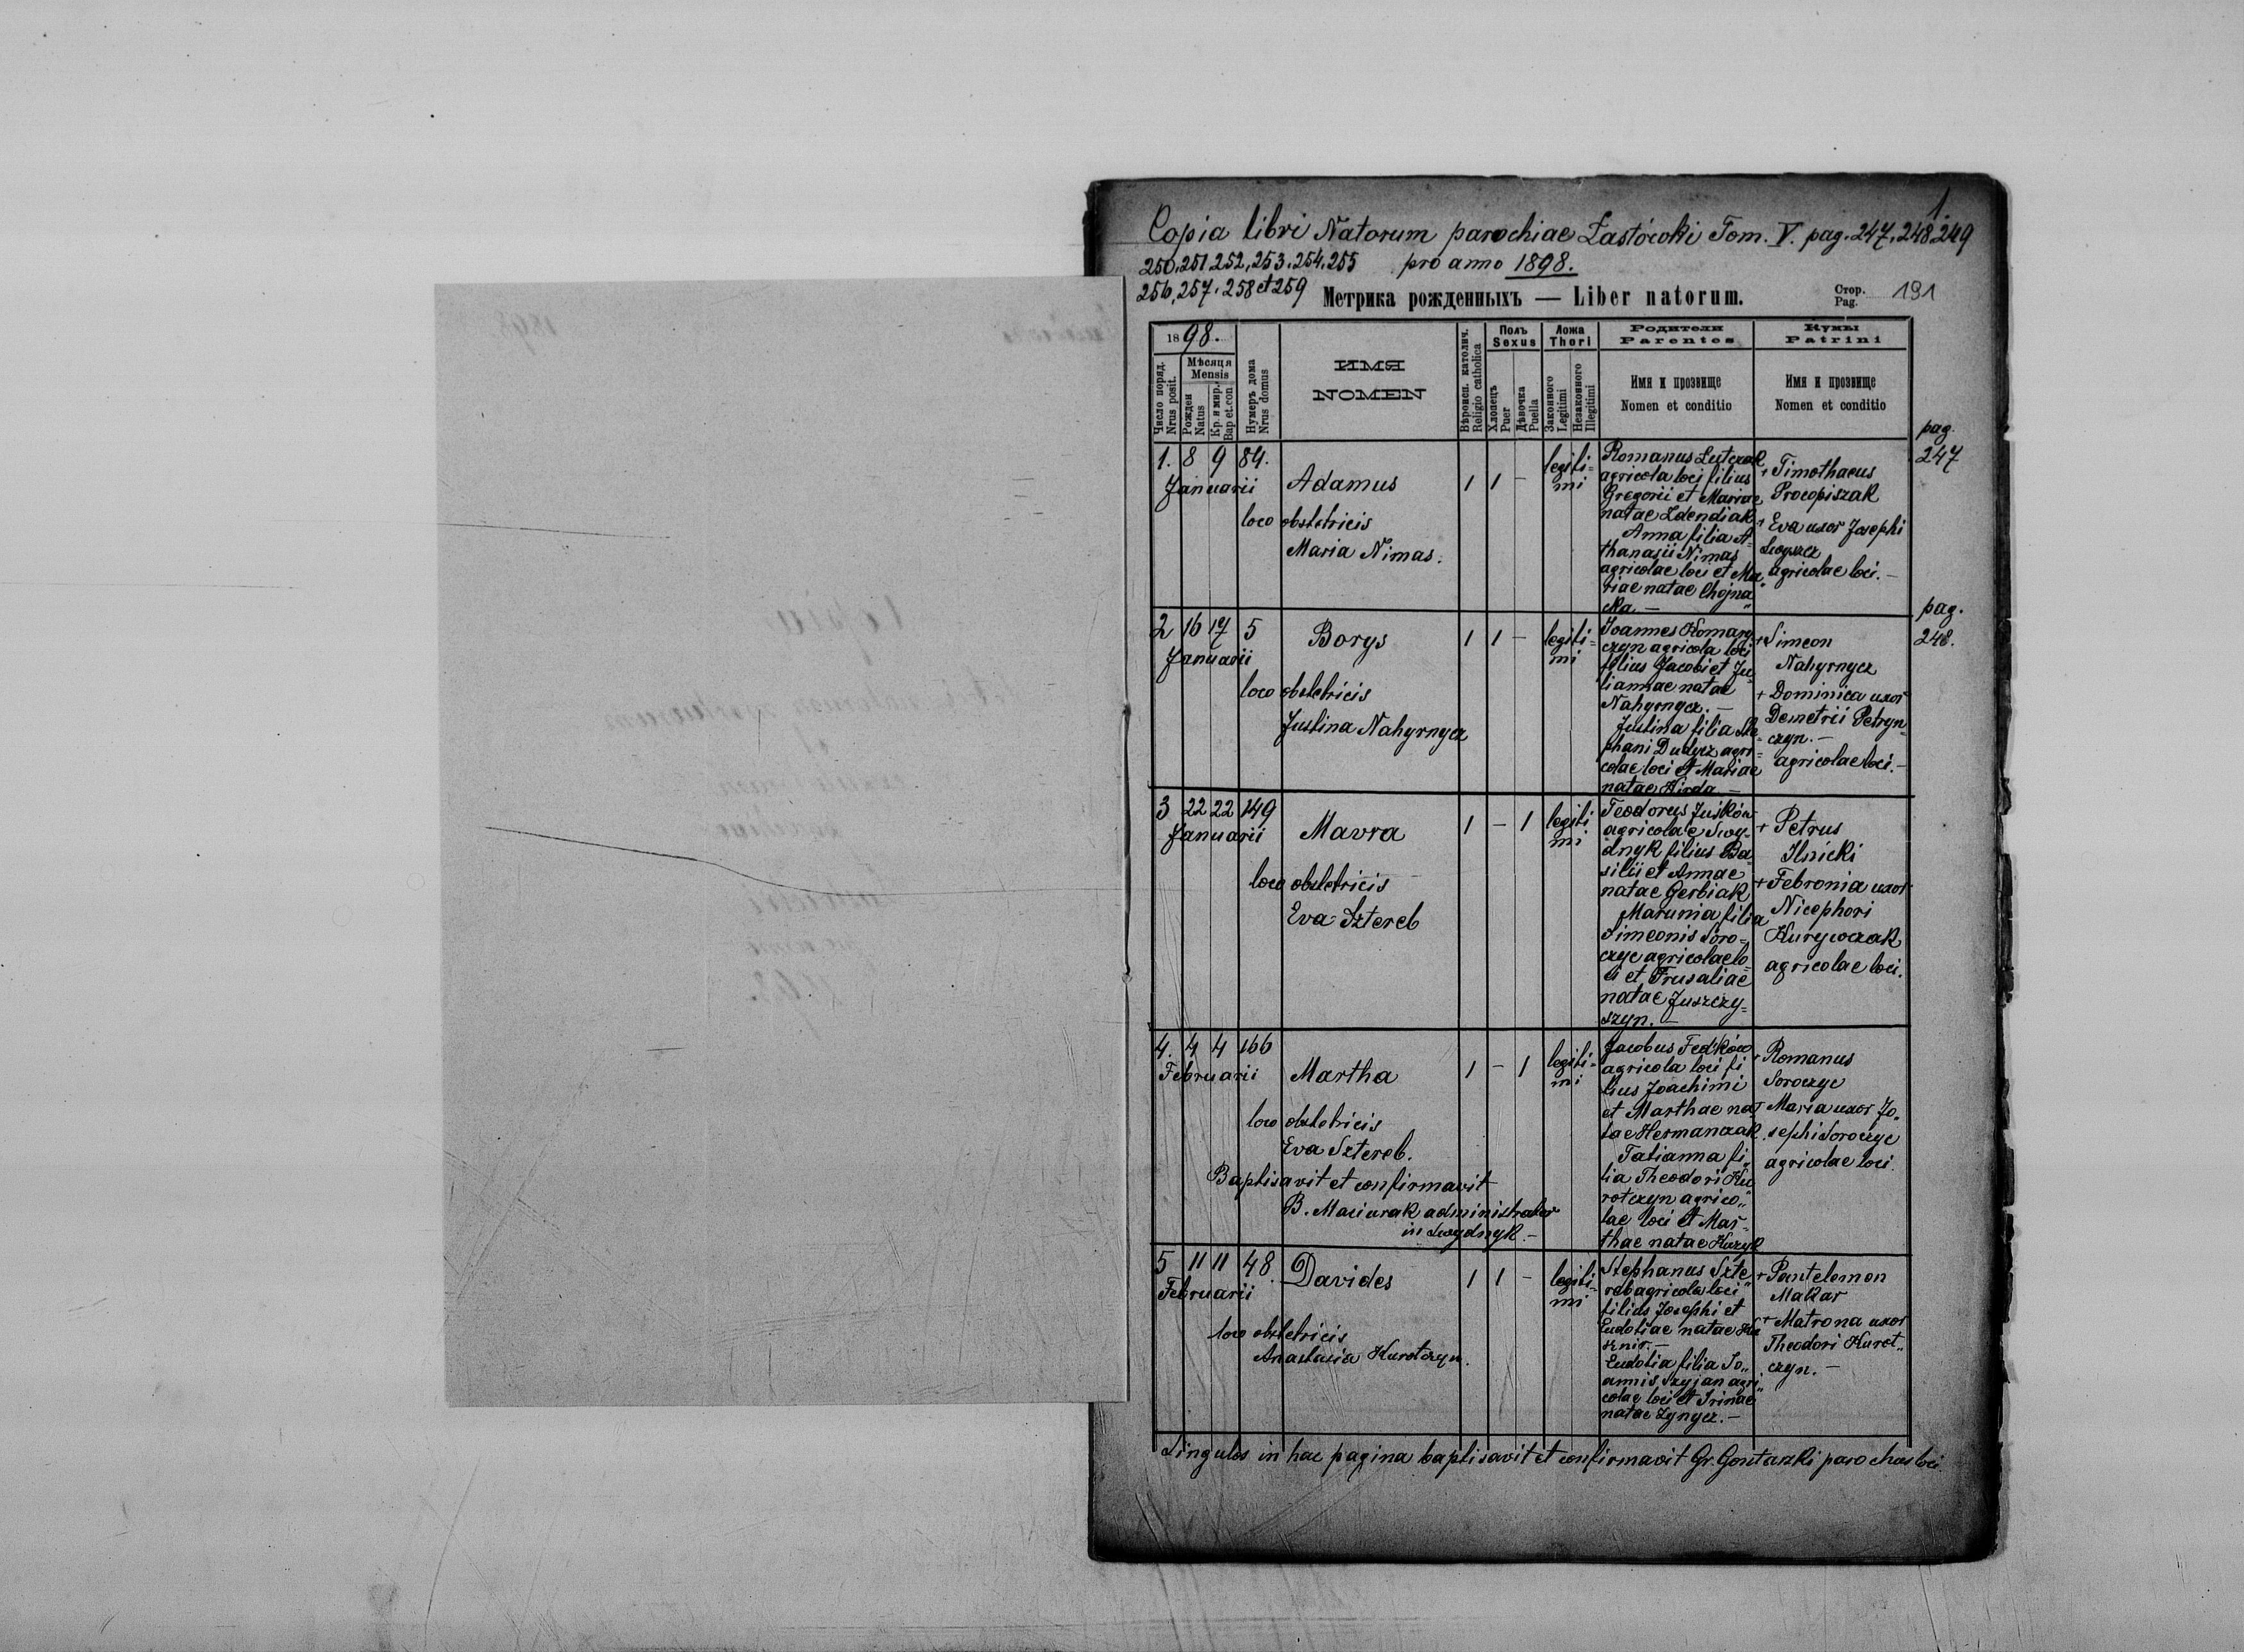 1.
Copia libri Natorum parochiae Łastówki Tom. V. pag. 247, 248, 249
250, 251, 252, 253, 254, 255 pro anno 1898.
256, 257, 258 et 259
Метрика рожденныхъ — Liber natorum.
Стор.
Pag. 191
1898.
Число поряд.
Nrus posit.
Мѣсяця
Mensis
Рожден
Natus
Кр. и мир.
Bap et con
Нумеръ дома
Nrus domus
ИМЯ
NOMEN
Вѣроисп. католич.
Religio catholica
Полъ
Sexus
Хлопецъ
Puer
Дѣвочка
Puella
Ложа
Thori
Законного
Legitimi
Незаконного
Illegitimi
Родители
Parentes
Имя и прозвище
Nomen et conditio
Кумы
Patrini
Имя и прозвище
Nomen et conditio
pag.
247
1. 8 9 84.
Januarii
Adamus
loco obstetricis
Maria Nimas.
1 1 -
legiti-
mi
Romanus Luczak
agricola loci filius
Gregorii et Mariae
natae Zdendiak
Anna filia A-
thanasii Nimas
agricolae loci et Ma-
riae natae Chojna
cka —
+ Timothaeus
Procopiszak
+ Eva uxor Josephi
agricolae loci. —
pag.
248.
2 16 17 5
Januarii
Borys
loco obstetricis
Justina Nahyrnycz
1 1 -
legiti-
mi
Joannes Komarny-
czyn agricola loci
filius Jacobi et Ju-
liannae natae
Nahyrnycz. —
Justina filia Ste-
phani Dudycz agri-
colae loci et Mariae
natae Hirda —
+ Simeon
Nahyrnycz
+ Dominica uxor
Demetrii Petryn-
czyn. —
agricolae loci. —
3 22 22 149
Januarii
Mavra
loco obstetricis
Eva Sztereb
1 - 1
legiti
mi
Teodorus Juśków
agricola e Swy-
dnyk filius Ba-
silii et Annae
natae Gerbiak
Marunia filia
Simeonis Soro-
czyc agricolae lo-
ci et Frusaliae
natae Juszczy-
szyn. —
+ Petrus
Ilnicki
+ Febronia uxor
Nicephori
Kurywczak
agricolae loci.
4. 4 4 166
Februarii
Martha
loco obstetricis
Eva Sztereb.
Baptisavit et confirmavit
B. Maciurak administrator
in Swydnyk. —
1 - 1
legiti-
mi
Jacobus Fedków
agricola loci fi
lius Joachimi
et Marthae na-
tae Hermanczak
Tatianna fi-
lia Theodori Ku
rotczyn agrico-
lae loci et Mar-
thae natae Kuzyk
+ Romanus
Soroczyc
+ Maria uxor Jo-
sephi Soroczyc
agricolae loci.
5 11 11 48.
Februarii
Davides
loco obstetricis
Anastasia Kurotczyn.
1 1 -
legiti-
mi
Stephanus Szte-
reb agricola loci
filius Josephi et
Eudotiae natae Ku
sznir. —
Eudotia filia Jo-
annis Szyjan agri-
colae loci et Irinae
natae Zynycz. —
+ Pantelemon
Makar
+ Matrona uxor
Theodori Kurot-
czyn. —
Singulos in hac pagina baptisavit et confirmavit Gr. Gontarski parochus loci